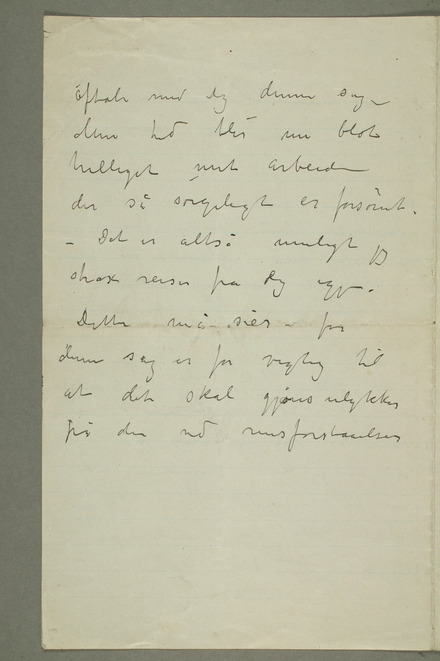 aftale med dig denne sag –
Men tid blir nu blot
helliget mit arbeide
der så sørgeligt er forsömt.
– Det er altså muligt jeg
strax reiser fra dig igjen.
Dette må sies – for
denne sag er for vigtig til
at det skal gjøres ulykker
på den ved misforstaaelser